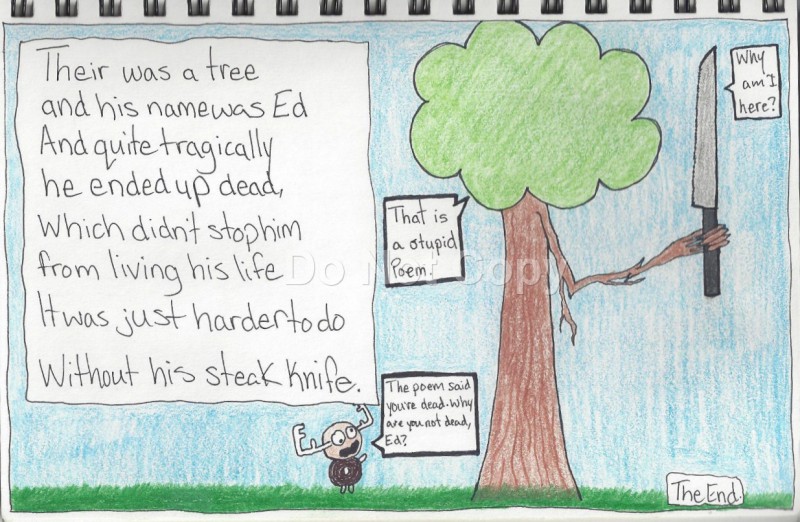 Their was a tree
and his name was Ed
And quite tragically
he ended up dead,
Which didn't stop him
from living his life
It was just harder to do
Without his steak knife.
That is
a stupid
Poem.
Why
am I
here?
The poem said
you're dead. Why
are you not dead,
Ed?
The End.
Do Not Copy